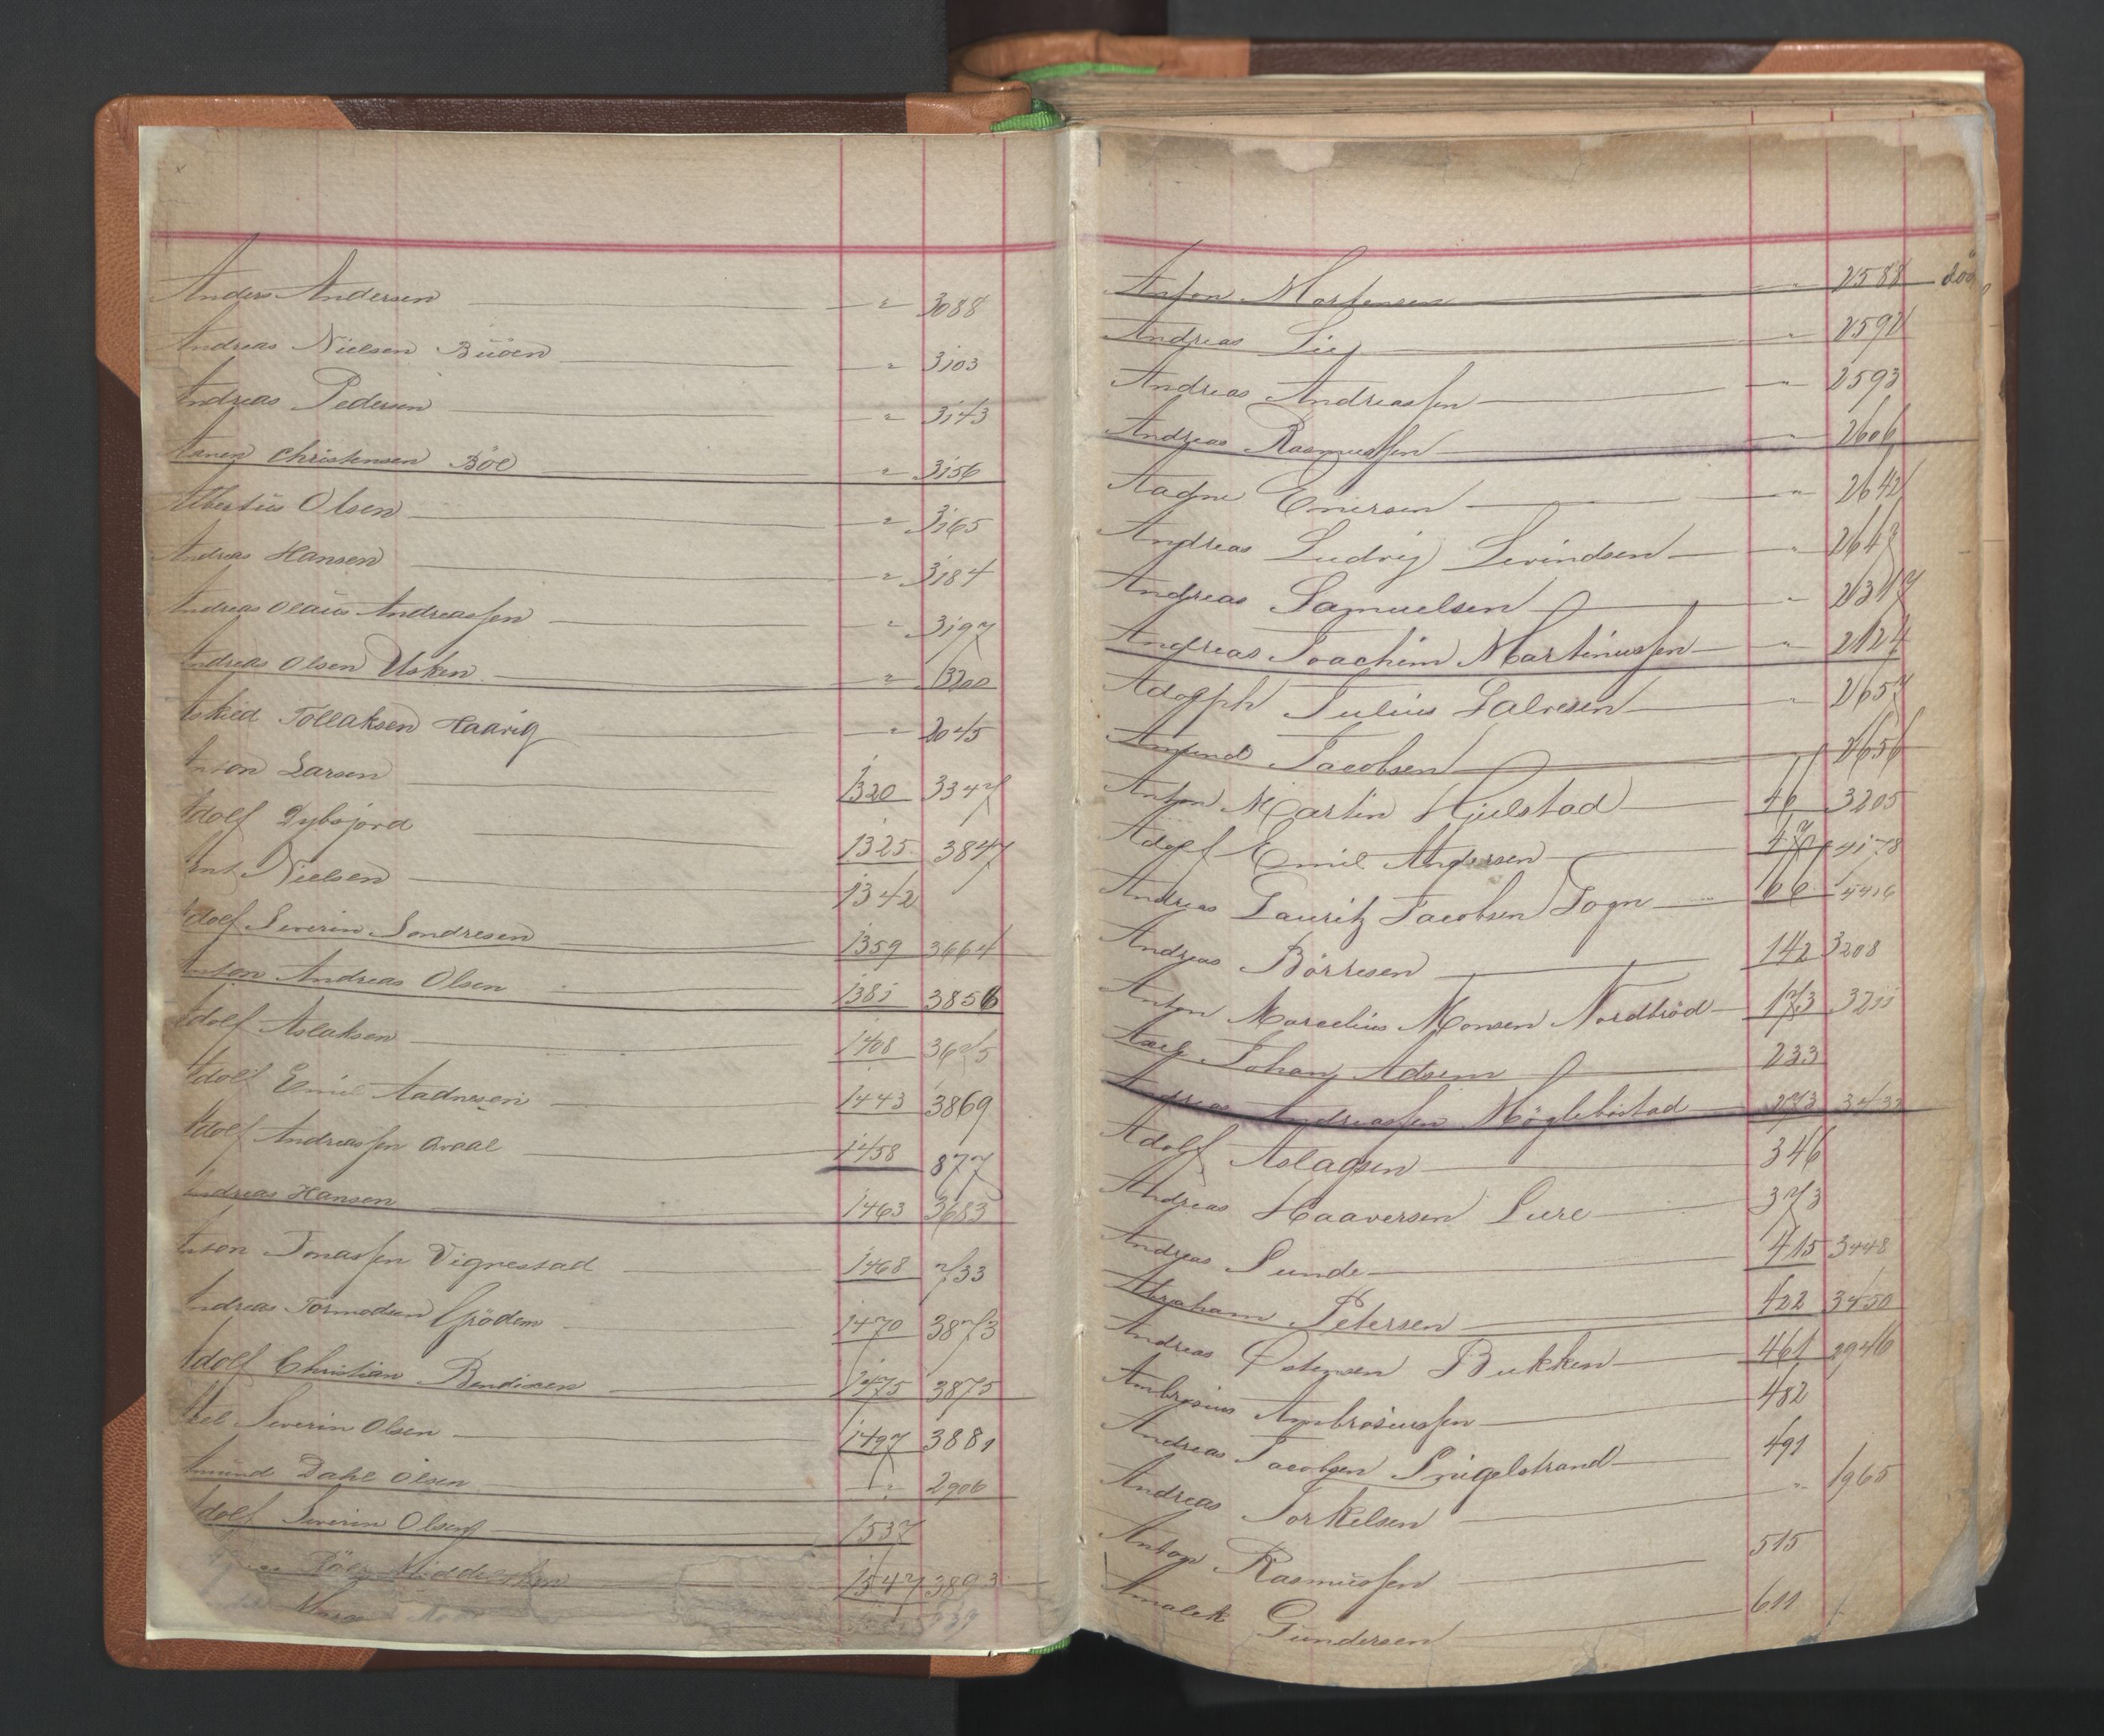 Anders Andersen " 3088
Andreas Nielsen Büöen " 3103
Andreas Pedersen " 3143
Aanen Christensen Böe " 3156
Albertüs Olsen " 3165
Andreas Hansen " 3184
Andreas Olaüs Andreassen " 3197
Andreas Olsen Usken " 3200
Askild Tollaksen Haavig " 2045
Anton Larsen 1320 3347
Adolf Dybsjord 1325 3847
Ant Nielsen 1342
Adolf Severin Sondresen 1359 3664
Anton Andreas Olsen 1381 3856
Adolf Aslaksen 1408 3675
Adolf Emil Aadnesen 1443 3869
Adolf Andreassen Avaal 1458 877
Andreas Hansen 1463 3683
Anton Jonassen Vignestad 1468 733
Andreas Tormodsen Grödem 1470 3873
Adolf Christian Bendixen 1475 3875
Axel Severin Olsen 1497 3881
Amünd Dahl Olsen " 2906
Adolf Severin Olsen 1537
1547 3893
Anton Mortensen " 2588 död
Andreas Lie " 2592
Andreas Andreassen " 2593
Andreas Rasmussen " 2606
Aagne Enersen " 2642
Andreas Ludvig Sevindsen " 2643
Andreas Samuelsen " 2317
Andreas Joachim Martinussen " 2124
Adolph Julius Salvesen " 2657
Amund Jacobsen " 2656
Anton Martin Hjelstad 46 3205
Adolf Emil Andersen 47 4178
Andreas Lauritz Jacobsen Sogn 66 4416
Andreas Börresen 142 3208
Anton Marcelius Monsen Nordbröd 173 3211
Axel Johan Adsem 233
Andreas Andreassen Mögleböstad 273 3433
Adolf Aslagsen 346
Andreas Haaversen Lure 373
Andreas Sunde 415 3448
Abraham Petersen 422 3450
Andreas Ostensen Bukken 461 2946
Ambrosius Ambrosiussen 482
Andreas Jacobsen Snigelstrand 491
Andreas Torkelsen " 1965
Anton Rasmüssen 515
Amalek Gundersen 611